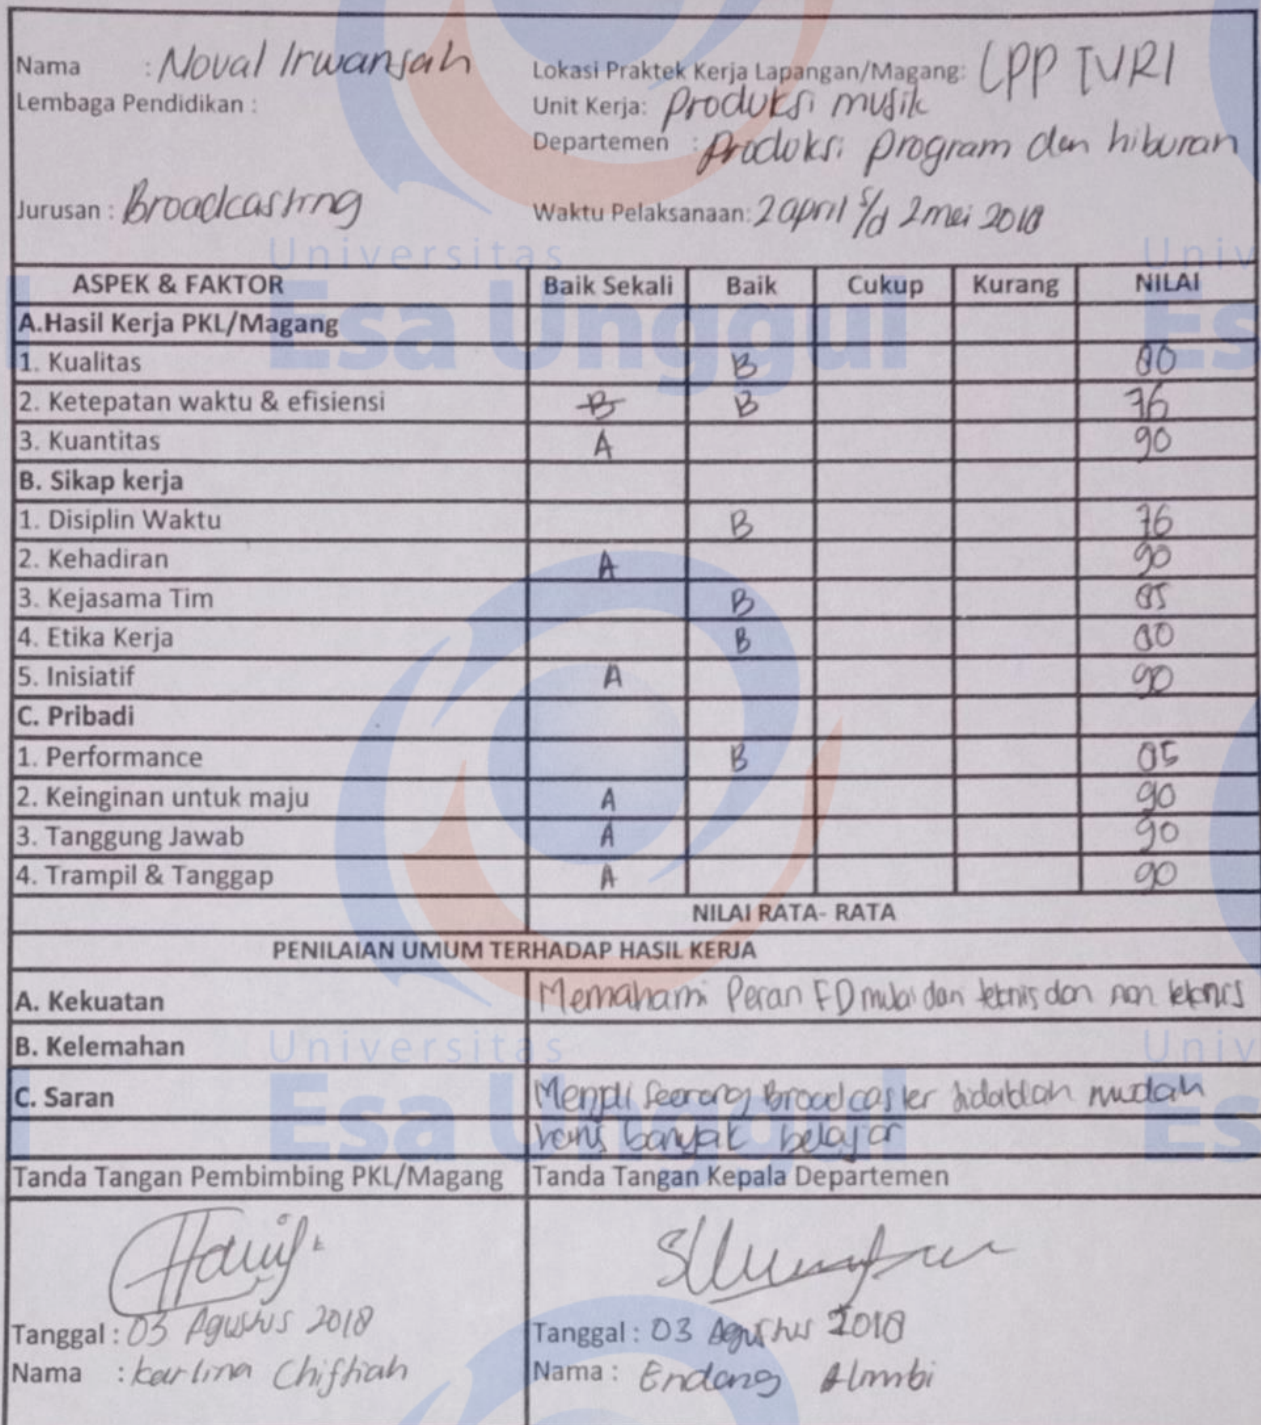 Nama : Noval Irwansah
Lokasi Praktek Kerja Lapangan/Magang: LPP TVRI
Lembaga Pendidikan :
Unit Kerja: Produksi musik
Departemen : Produksi program dan hiburan
Jurusan : Broadcasting
Waktu Pelaksanaan: 2 april s/d 2 mei 2018
Universitas
Esa Unggul
ASPEK & FAKTOR Baik Sekali Baik Cukup Kurang NILAI
A.Hasil Kerja PKL/Magang
1. Kualitas B 80
2. Ketepatan waktu & efisiensi B B 76
3. Kuantitas A 90
B. Sikap kerja
1. Disiplin Waktu B 76
2. Kehadiran A 90
3. Kejasama Tim B 85
4. Etika Kerja B 80
5. Inisiatif A 90
C. Pribadi
1. Performance B 85
2. Keinginan untuk maju A 90
3. Tanggung Jawab A 90
4. Trampil & Tanggap A 90
NILAI RATA- RATA
PENILAIAN UMUM TERHADAP HASIL KERJA
A. Kekuatan Memahami Peran FD mulai dari teknis dan non teknis
B. Kelemahan
Universitas
Esa Unggul
C. Saran Menjdi seorang Broadcaster tidaklah mudah
harus banyak belajar
Tanda Tangan Pembimbing PKL/Magang Tanda Tangan Kepala Departemen
Tanggal : 03 Agustus 2018
Nama : Karlina Chiftiah
Tanggal : 03 Agustus 2018
Nama : Endang